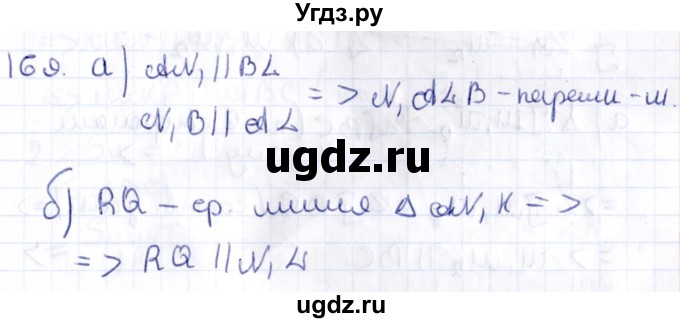 Угдз.ру
169. а) AN₁ || BL
=> N₁ALB - парал-м.
N₁B || AL
ugdz.ru
б) RQ - ср. линия Δ AN₁K =>
=> RQ || N₁L
ugdz.ru